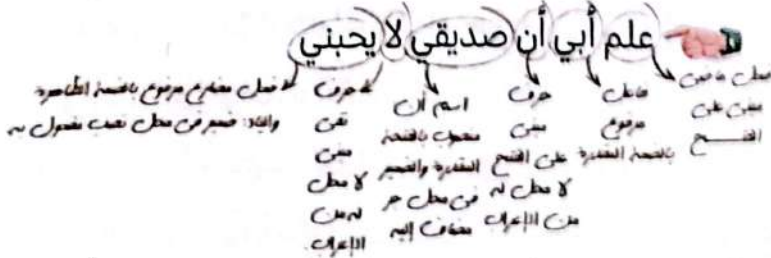 علم أبي أن صديقي لا يحبني
فعل ماضي
مبني على
الفتح
فاعل
مرفوع
بالضمة المقدرة
حرف
مبني
على الفتح
لا محل له
من الإعراب
اسم أن
منصوب بالفتحة
المقدرة والضمير
في محل جر
مضاف إليه
حرف
نفي
مبني
لا محل
له من
الإعراب
فعل مضارع مرفوع بالضمة الظاهرة
والياء: ضمير في محل نصب مفعول به